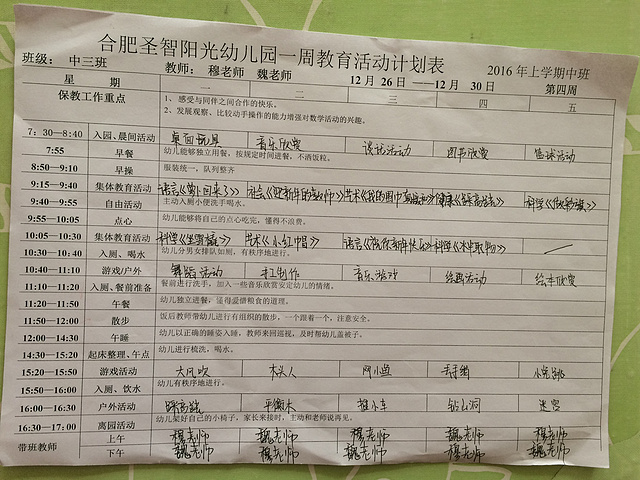 合肥圣智阳光幼儿园一周教育活动计划表
班级: 中三班 教师: 穆老师 魏老师 12月 26日 ——12月 30日 2016年上学期中班 第四周
星 期 一 二 三 四 五
保教工作重点 1、感受与同伴之间合作的快乐。
2、发展观察、比较动手操作的能力增强对数学活动的兴趣。
7: 30—8:40 入园、晨间活动 桌面玩具 音乐欣赏 谈话活动 图书欣赏 篮球活动
7:55 早餐 幼儿能够独立用餐,按规定时间进餐,不洒饭粒。
8:50—9:10 早操 服装统一,队列整齐
9:15—9:40 集体教育活动 语言《萝卜回来了》 社会
9:40—9:55 自由活动 主动入厕小便洗手喝水。
9:55—10:05 点心 幼儿能够将自己的点心吃完,懂得不浪费。
10:05—10:30 集体教育活动 科学 艺术《小红帽》 语言 科学
10:30—10:40 入厕、喝水 幼儿分男女排队如厕,有秩序地进行。
10:40—11:10 游戏/户外 舞蹈活动 手工制作 音乐游戏 绘画活动 绘本欣赏
11:10—11:20 入厕、餐前准备 餐前进行洗手,加入一些音乐欣赏安定幼儿的情绪。
11:20—11:50 午餐 幼儿独立进餐,懂得爱惜粮食的道理。
11:50—12:00 散步 饭后教师带幼儿进行有组织的散步,一个跟着一个,注意安全。
12:00—14:30 午睡 幼儿以正确的睡姿入睡,教师来回巡视,及时帮幼儿盖被子。
14:30—15:20 起床整理、午点 幼儿进行梳洗,喝水。
15:20—15:50 游戏活动 大风吹 木头人 网小鱼 丢手绢
15:50—16:00 入厕、饮水 幼儿有秩序地进行。
16:00—16:30 户外活动 踩高跷 平衡木 推小车 钻山洞 迷宫
16:30—17:00 离园活动 幼儿架好自己的小椅子,家长来接时,主动和老师说再见。
带班教师 上午 穆老师 魏老师 穆老师 魏老师 穆老师
下午 魏老师 穆老师 魏老师 穆老师 魏老师